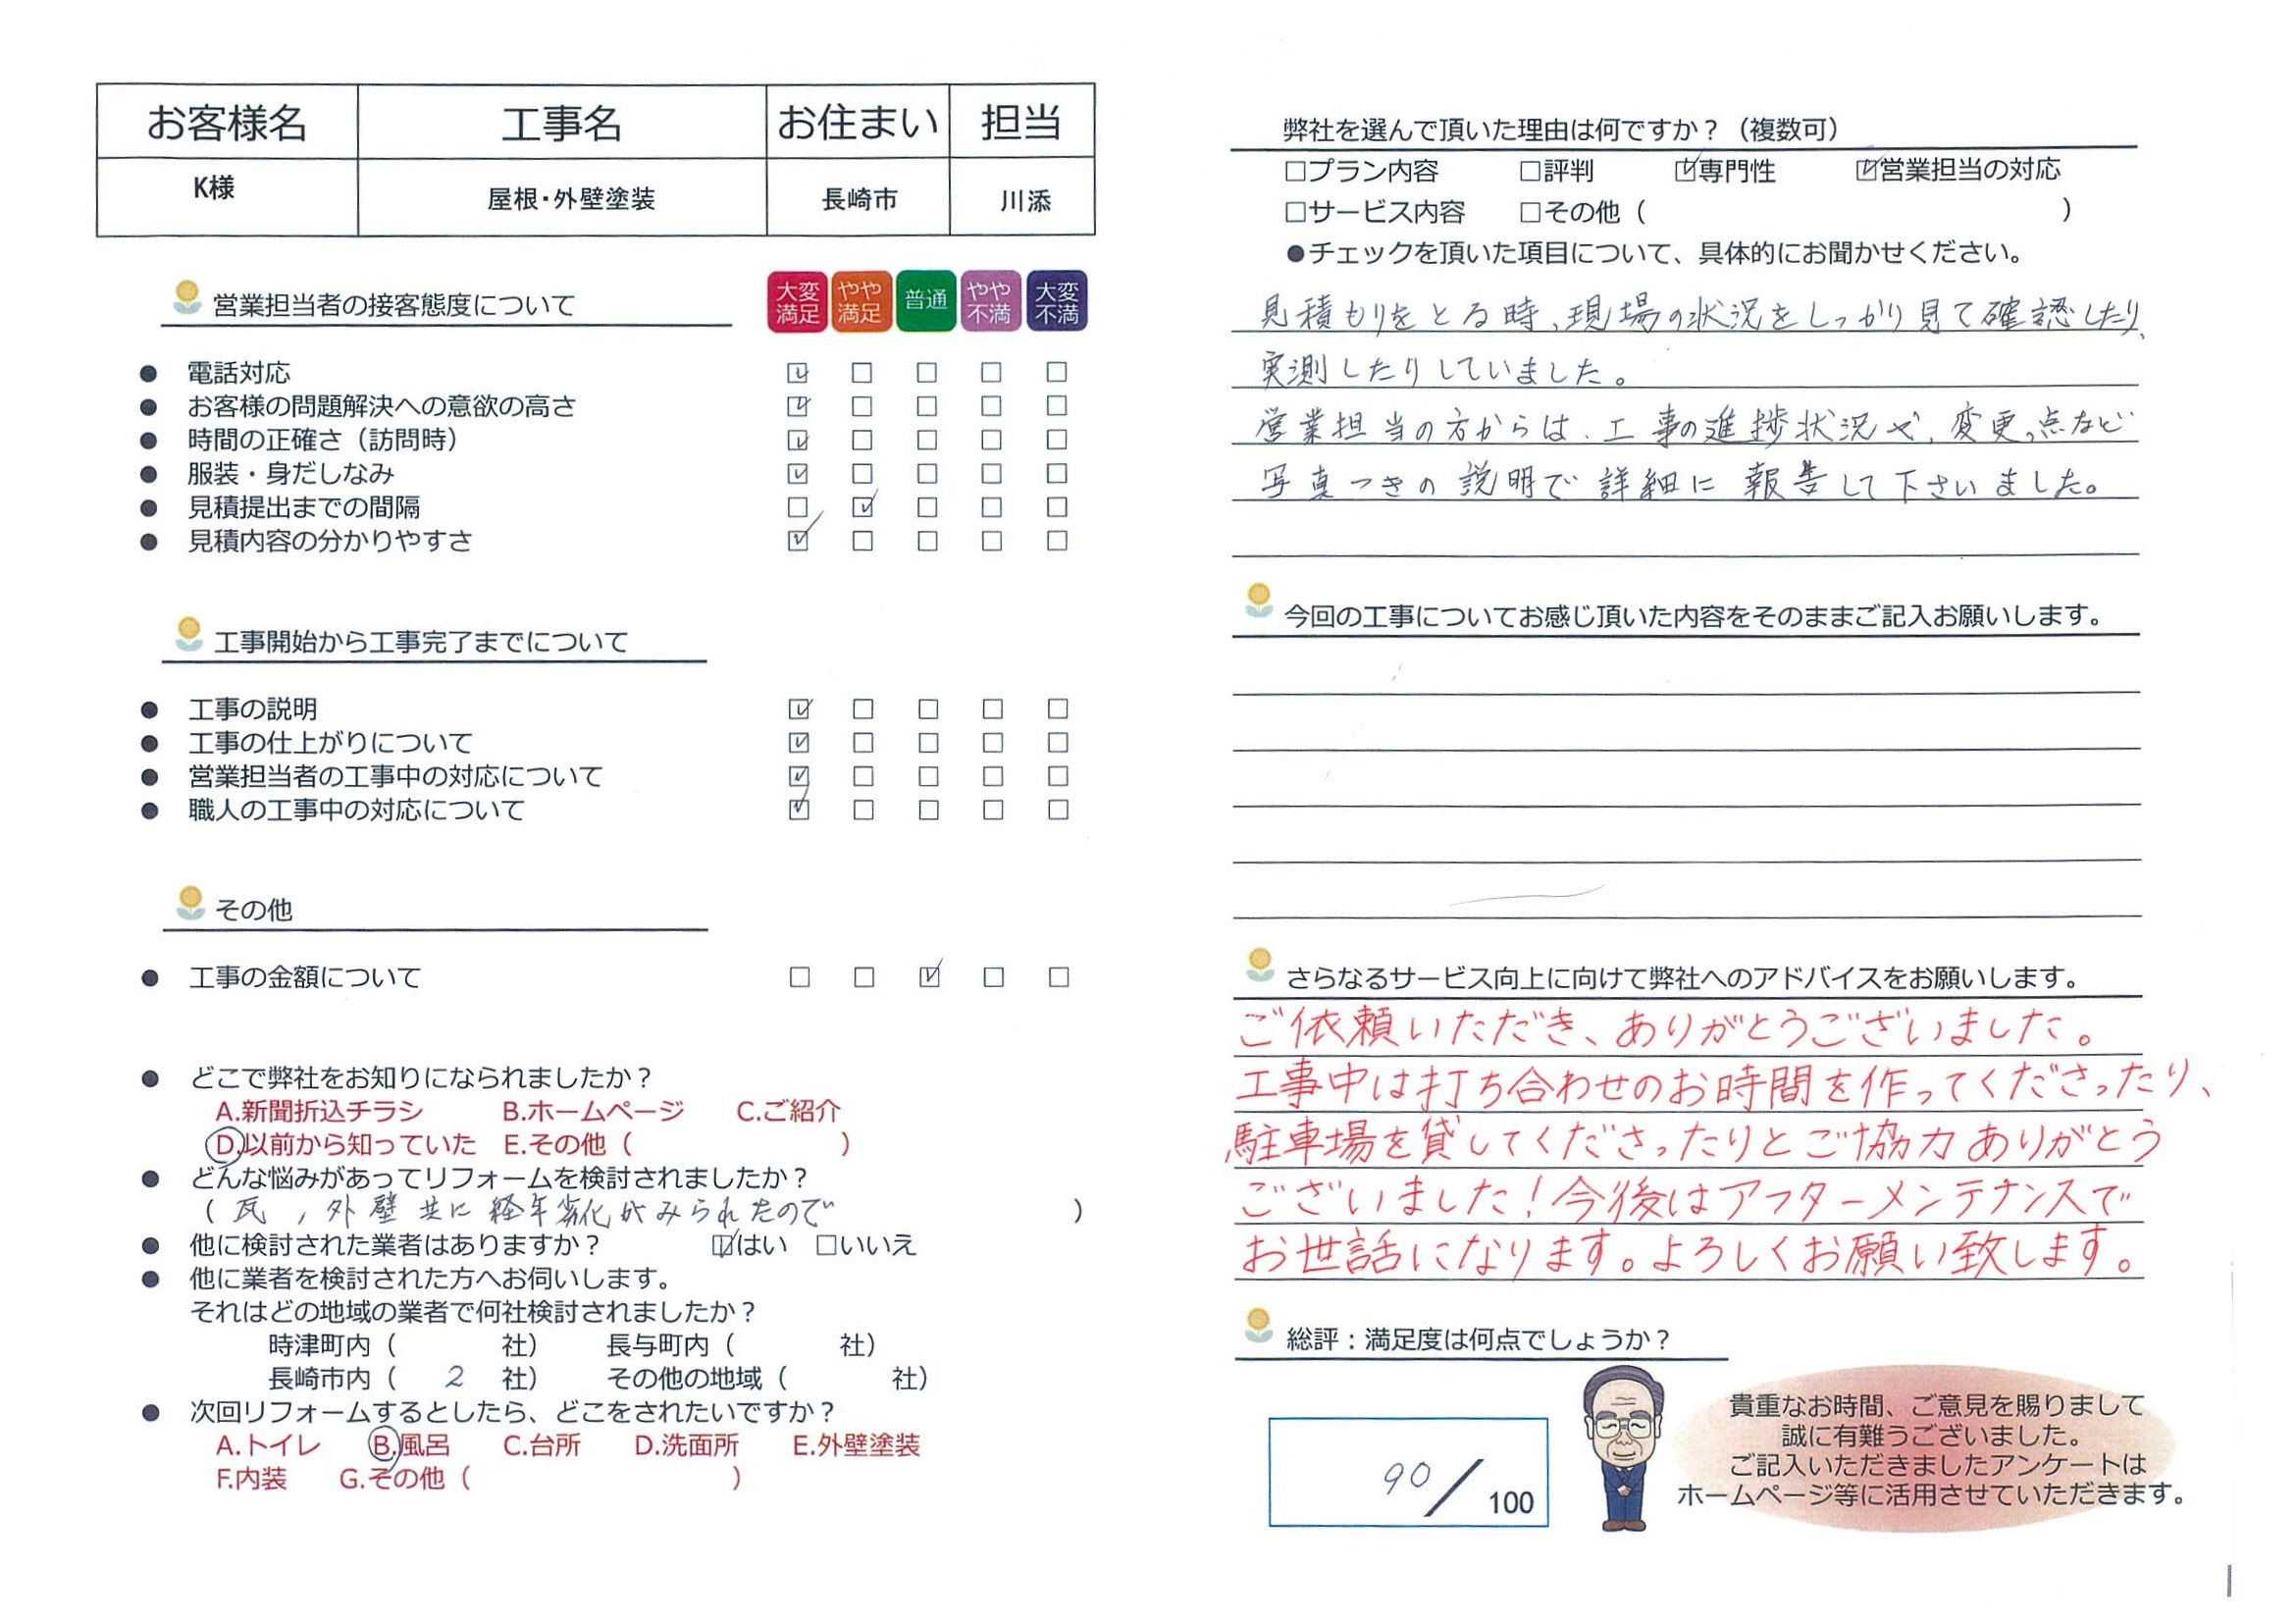 お客様名 工事名 お住まい 担当
K様 屋根・外壁塗装 長崎市 川添
営業担当者の接客態度について
大変満足 やや満足 普通 やや不満 大変不満
● 電話対応 ☑ □ □ □ □
● お客様の問題解決への意欲の高さ ☑ □ □ □ □
● 時間の正確さ（訪問時） ☑ □ □ □ □
● 服装・身だしなみ ☑ □ □ □ □
● 見積提出までの間隔 □ ☑ □ □ □
● 見積内容の分かりやすさ ☑ □ □ □ □
工事開始から工事完了までについて
● 工事の説明 ☑ □ □ □ □
● 工事の仕上がりについて ☑ □ □ □ □
● 営業担当者の工事中の対応について ☑ □ □ □ □
● 職人の工事中の対応について ☑ □ □ □ □
その他
● 工事の金額について □ □ ☑ □ □
● どこで弊社をお知りになられましたか？
A.新聞折込チラシ B.ホームページ C.ご紹介
D.以前から知っていた E.その他（ ）
● どんな悩みがあってリフォームを検討されましたか？
（ 瓦、外壁共に経年劣化がみられたので ）
● 他に検討された業者はありますか？ ☑はい □いいえ
● 他に業者を検討された方へお伺いします。
それはどの地域の業者で何社検討されましたか？
時津町内（ 社） 長与町内（ 社）
長崎市内（ 2 社） その他の地域（ 社）
● 次回リフォームするとしたら、どこをされたいですか？
A.トイレ B.風呂 C.台所 D.洗面所 E.外壁塗装
F.内装 G.その他（ ）
弊社を選んで頂いた理由は何ですか？（複数可）
□プラン内容 □評判 ☑専門性 ☑営業担当の対応
□サービス内容 □その他（ ）
●チェックを頂いた項目について、具体的にお聞かせください。
見積もりをとる時、現場の状況をしっかり見て確認したり、
実測したりしていました。
営業担当の方からは、工事の進捗状況や、変更点など
写真つきの説明で詳細に報告して下さいました。
今回の工事についてお感じ頂いた内容をそのままご記入お願いします。
さらなるサービス向上に向けて弊社へのアドバイスをお願いします。
ご依頼いただき、ありがとうございました。
工事中は打ち合わせのお時間を作ってくださったり、
駐車場を貸してくださったりとご協力ありがとう
ございました！今後はアフターメンテナンスで
お世話になります。よろしくお願い致します。
総評：満足度は何点でしょうか？
90/100
貴重なお時間、ご意見を賜りまして
誠に有難うございました。
ご記入いただきましたアンケートは
ホームページ等に活用させていただきます。